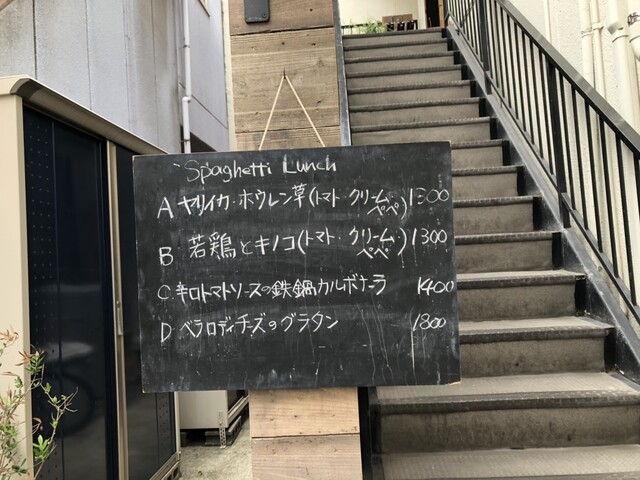 Spaghetti Lunch
A ヤリイカ・ホウレン草(トマト・クリーム・ペペ)1300
B 若鶏とキノコ(トマト・クリーム・ペペ)1300
C 辛口トマトソースの鉄鍋カルボナーラ 1400
D ベラロディチーズのグラタン 1300